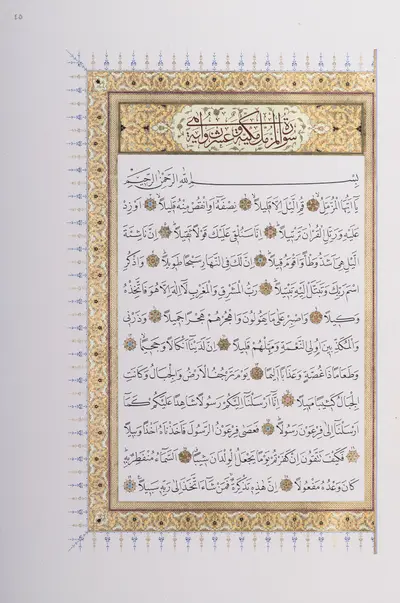 سُورَةُ الْمُزَّمِّلِ مَكِّيَّةٌ
بِسْمِ اللهِ الرَّحْمٰنِ الرَّحِيمِ
يَا اَيُّهَا الْمُزَّمِّلُ قُمِ الَّيْلَ اِلَّا قَلِيلًا نِصْفَهُ اَوِ انْقُصْ مِنْهُ قَلِيلًا اَوْ زِدْ
عَلَيْهِ وَرَتِّلِ الْقُرْاٰنَ تَرْتِيلًا اِنَّا سَنُلْقِى عَلَيْكَ قَوْلًا ثَقِيلًا اِنَّ نَاشِئَةَ
الَّيْلِ هِىَ اَشَدُّ وَطْأً وَاَقْوَمُ قِيلًا اِنَّ لَكَ فِى النَّهَارِ سَبْحًا طَوِيلًا وَاذْكُرِ
اسْمَ رَبِّكَ وَتَبَتَّلْ اِلَيْهِ تَبْتِيلًا رَبُّ الْمَشْرِقِ وَالْمَغْرِبِ لَا اِلٰهَ اِلَّا هُوَ فَاتَّخِذْهُ
وَكِيلًا وَاصْبِرْ عَلٰى مَا يَقُولُونَ وَاهْجُرْهُمْ هَجْرًا جَمِيلًا وَذَرْنِى
وَالْمُكَذِّبِينَ اُولِى النَّعْمَةِ وَمَهِّلْهُمْ قَلِيلًا اِنَّ لَدَيْنَا اَنْكَالًا وَجَحِيمًا
وَطَعَامًا ذَا غُصَّةٍ وَعَذَابًا اَلِيمًا يَوْمَ تَرْجُفُ الْاَرْضُ وَالْجِبَالُ وَكَانَتِ
الْجِبَالُ كَثِيبًا مَهِيلًا اِنَّا اَرْسَلْنَا اِلَيْكُمْ رَسُولًا شَاهِدًا عَلَيْكُمْ كَمَا
اَرْسَلْنَا اِلٰى فِرْعَوْنَ رَسُولًا فَعَصٰى فِرْعَوْنُ الرَّسُولَ فَاَخَذْنَاهُ اَخْذًا وَبِيلًا
فَكَيْفَ تَتَّقُونَ اِنْ كَفَرْتُمْ يَوْمًا يَجْعَلُ الْوِلْدَانَ شِيبًا السَّمَاءُ مُنْفَطِرٌ بِهِ
كَانَ وَعْدُهُ مَفْعُولًا اِنَّ هٰذِهِ تَذْكِرَةٌ فَمَنْ شَاءَ اتَّخَذَ اِلٰى رَبِّهِ سَبِيلًا